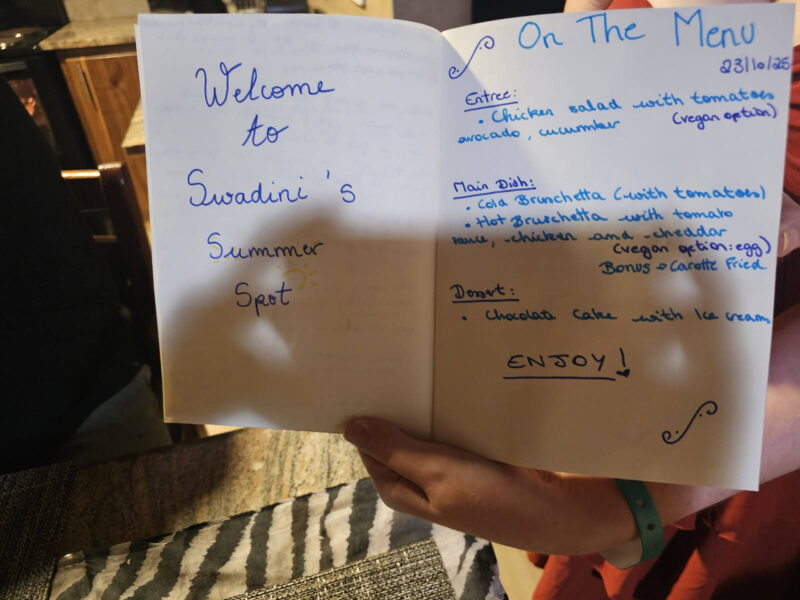 Welcome
to
Swadini's
Summer
Spot
On The Menu
23/10/25
Entree:
• Chicken salad with tomatoes
avocado, cucumber (vegan option)
Main Dish:
• Cold Bruschetta (with tomatoes)
• Hot Bruschetta with tomato
sauce, chicken and cheddar
(vegan option: egg)
Bonus → Carotte Fried
Dessert:
• Chocolate Cake with Ice cream
ENJOY!